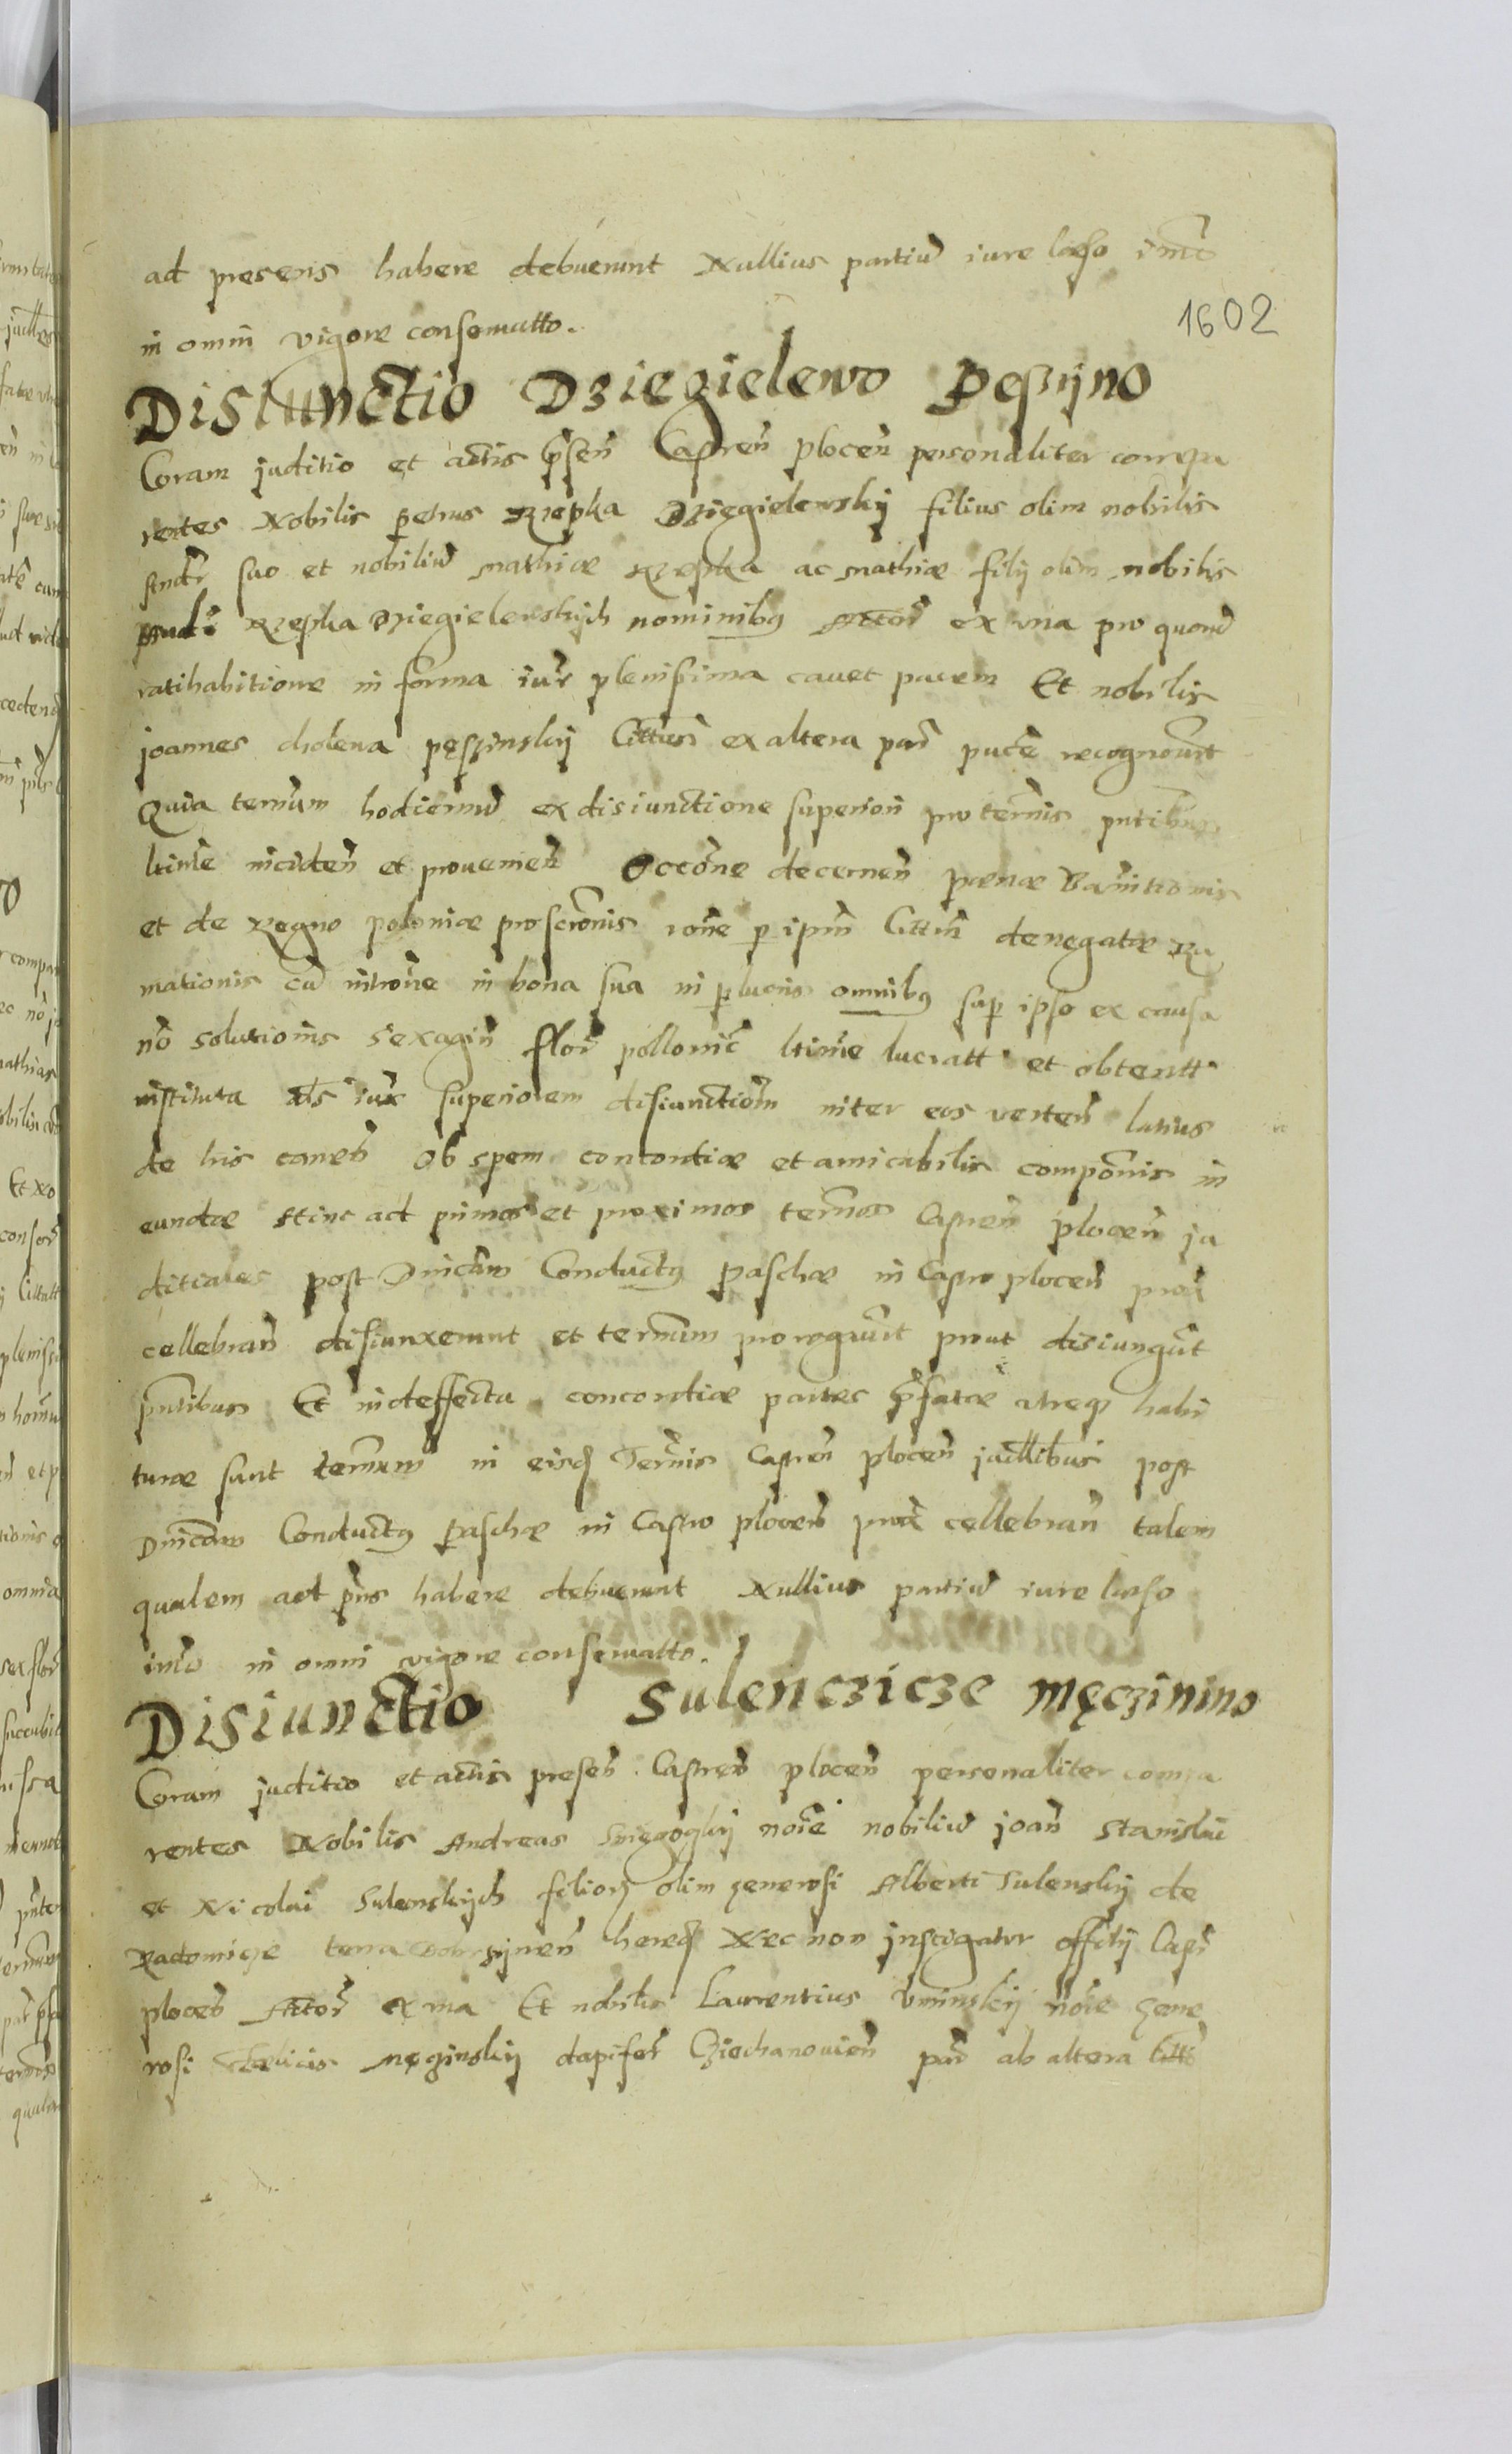 ad presens habere debuerunt Nullius partiu͂ iure læso im͂o
1602
in omni vigore conseruatto.
Disiunctio Dziegielewo Pęszyno
Coram juditio et actis p͂sen͂ Castren͂ plocen͂ personaliter compa
rentes Nobilis petrus Rzepka Dzięgielewskij filius olim nobilis
Andr͂ suo et nobiliu͂ mathiæ Rzepka ac mathiæ filij olim nobilis
Rzepka Dziegielewskijch nominibq Actor͂ ex vna pro quoru͂
ratihabitione in forma iur͂ plenissima cauet parem Et nobilis
joannes cholewa pęszinskij Cittum͂ ex altera par͂ partes recognouer͂t
Quia termum͂ hodiernu͂ ex disiunctione superiori pro termis͂ pn͂tibus
ltime͂ inciden͂ et prouenien͂ Occo͂ne decernen͂ pœnæ Bannitionis
et de Regno poloniæ proscro͂nis ro͂ne p ipm͂ Cittm͂ denegatæ Ru
mationis cu͂ intro͂ne in bona sua in p lucris omnibq sup ipso ex causa
no͂ solutionis sexagin͂ flor͂ pollonic͂ ltime͂ lucratt et obtentt
instituta al͂s iux superiorem disiunctiom͂ inter eos verten͂ latius
de his canen͂ Ob spem concordiæ et amicabilis compo͂nis in
eundæ Hinc ad primos et proximos termos͂ Castren͂ plocen͂ ju
ditiales post Dnicam͂ Conductq Paschæ in Castro plocen͂ pro͂x
cellebran͂ disiunxerunt et termum͂ prorogaru͂t prout disiungu͂t
pn͂tibus Et in deffectu concordiæ partes p͂fatæ vtreqз habi
turæ sunt termum͂ in eisd Termis͂ Castren͂ plocen͂ judllibus post
Dnicam͂ Conductq Paschæ in Castro plocen͂ pro͂x cellebran͂ talem
qualem ad pn͂s habere debuerunt Nullius partiu͂ iure læso
im͂o in omni vigore conseruatto.
Disiunctio Sulenczicze Męczinino
Coram juditio et actis presen͂ Castren͂ plocen͂ personaliter compa
rentes Nobilis Andreas noi͂e nobiliu͂ joan͂ Stanislai
et Nicolai Sulenskijch filiorз olim generosi Alberti Sulenskij de
Radomicze terra Dobrzijnen͂ hered Nec non jnstigator offitij Castr͂
plocen͂ Actor͂ ex vna Et nobilis Laurentius Vminskij noi͂e gene
rosi Felicis dapifer͂ Cziechanouien͂ par͂ ab altera Citt͂